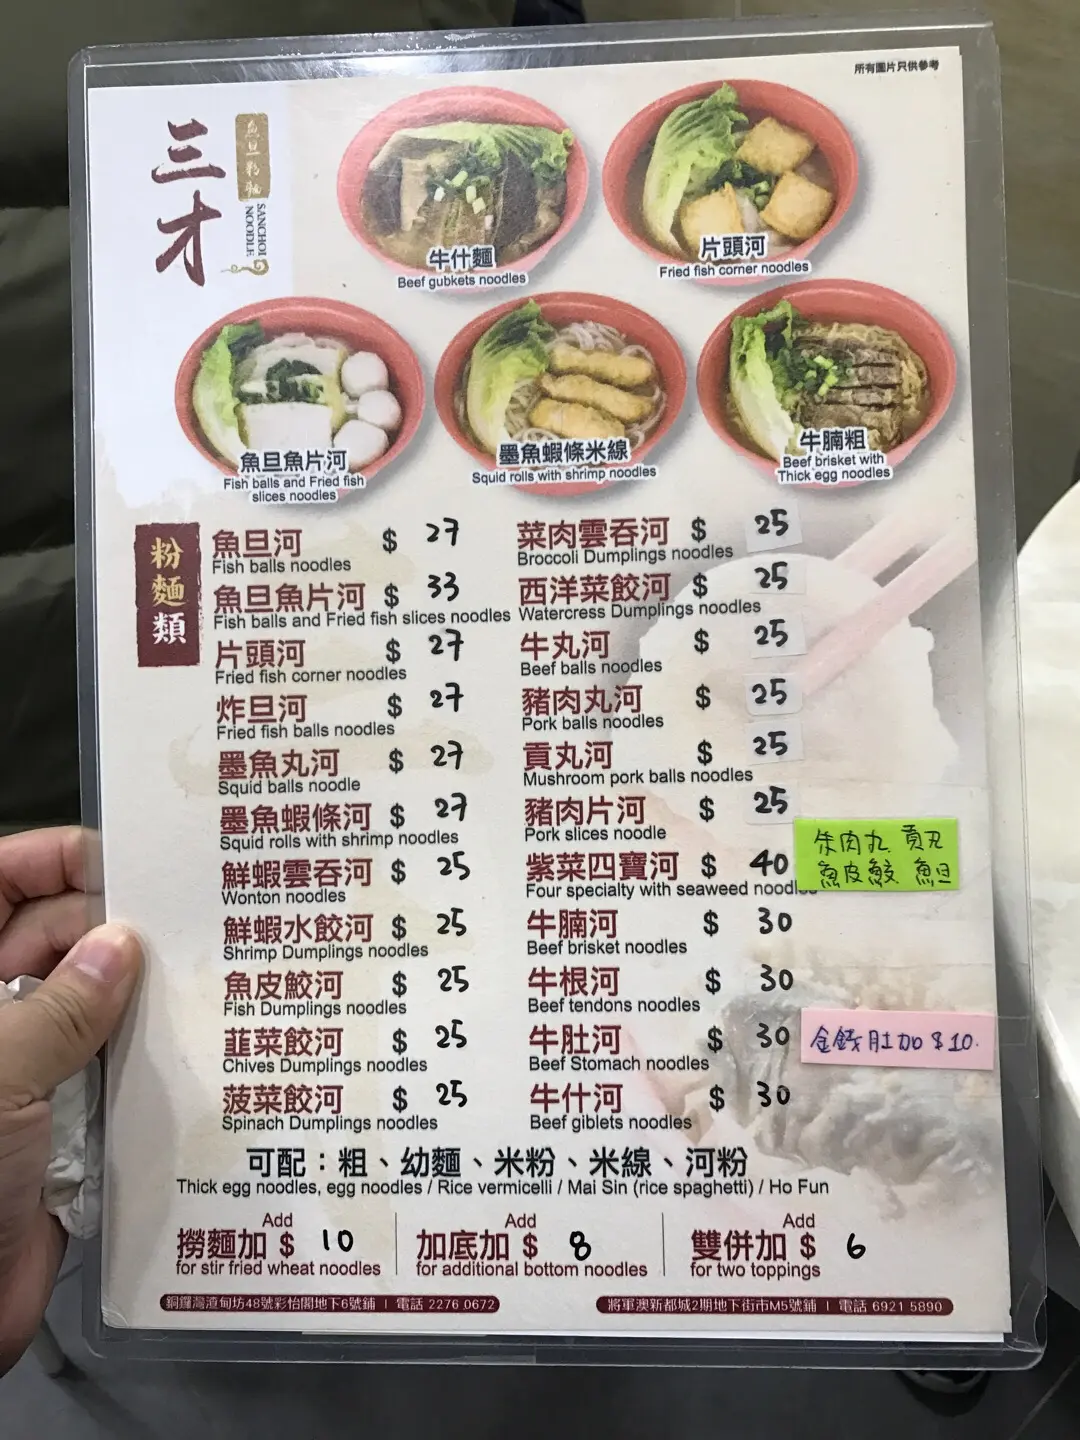 所有圖片只供參考
三才
魚旦粉麵
SANCHOI
NOODLE
牛什麵
Beef gubkets noodles
片頭河
Fried fish corner noodles
魚旦魚片河
Fish balls and Fried fish
slices noodles
墨魚蝦條米線
Squid rolls with shrimp noodles
牛腩粗
Beef brisket with
Thick egg noodles
粉麵類
魚旦河 $ 27
Fish balls noodles
魚旦魚片河 $ 33
Fish balls and Fried fish slices noodles
片頭河 $ 27
Fried fish corner noodles
炸旦河 $ 27
Fried fish balls noodles
墨魚丸河 $ 27
Squid balls noodle
墨魚蝦條河 $ 27
Squid rolls with shrimp noodles
鮮蝦雲吞河 $ 25
Wonton noodles
鮮蝦水餃河 $ 25
Shrimp Dumplings noodles
魚皮鮫河 $ 25
Fish Dumplings noodles
韮菜餃河 $ 25
Chives Dumplings noodles
菠菜餃河 $ 25
Spinach Dumplings noodles
菜肉雲吞河 $ 25
Broccoli Dumplings noodles
西洋菜餃河 $ 25
Watercress Dumplings noodles
牛丸河 $ 25
Beef balls noodles
豬肉丸河 $ 25
Pork balls noodles
貢丸河 $ 25
Mushroom pork balls noodles
豬肉片河 $ 25
Pork slices noodle
紫菜四寶河 $ 40
Four specialty with seaweed noodl
肉丸 貢丸
魚皮鮫 魚旦
牛腩河 $ 30
Beef brisket noodles
牛根河 $ 30
Beef tendons noodles
牛肚河 $ 30
Beef Stomach noodles
金錢肚加$10.
牛什河 $ 30
Beef giblets noodles
可配：粗、幼麵、米粉、米線、河粉
Thick egg noodles, egg noodles / Rice vermicelli / Mai Sin (rice spaghetti) / Ho Fun
Add
撈麵加 $ 10
for stir fried wheat noodles
Add
加底加 $ 8
for additional bottom noodles
Add
雙併加 $ 6
for two toppings
銅鑼灣渣甸坊48號彩怡閣地下6號鋪 | 電話 2276 0672
將軍澳新都城2期地下街市M5號鋪 | 電話 6921 5890